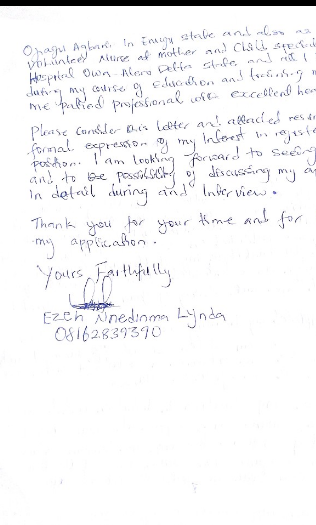 Ohagu Agbani in Enugu state and also as
Volunteer Nurse at Mother and Child specia
Hospital Owa-Alero Delta state, and all I
during my course of education and training
me pallied professional with excellent
Please Consider this letter and attached res
formal expression of my Interest in registe
position. I am looking forward to seeing
and to the possibility of discussing my a
in detail during and Interview.
Thank you for your time and for
my application.
Yours Faithfully
EZEH Nnedinma Lynda
08162839390